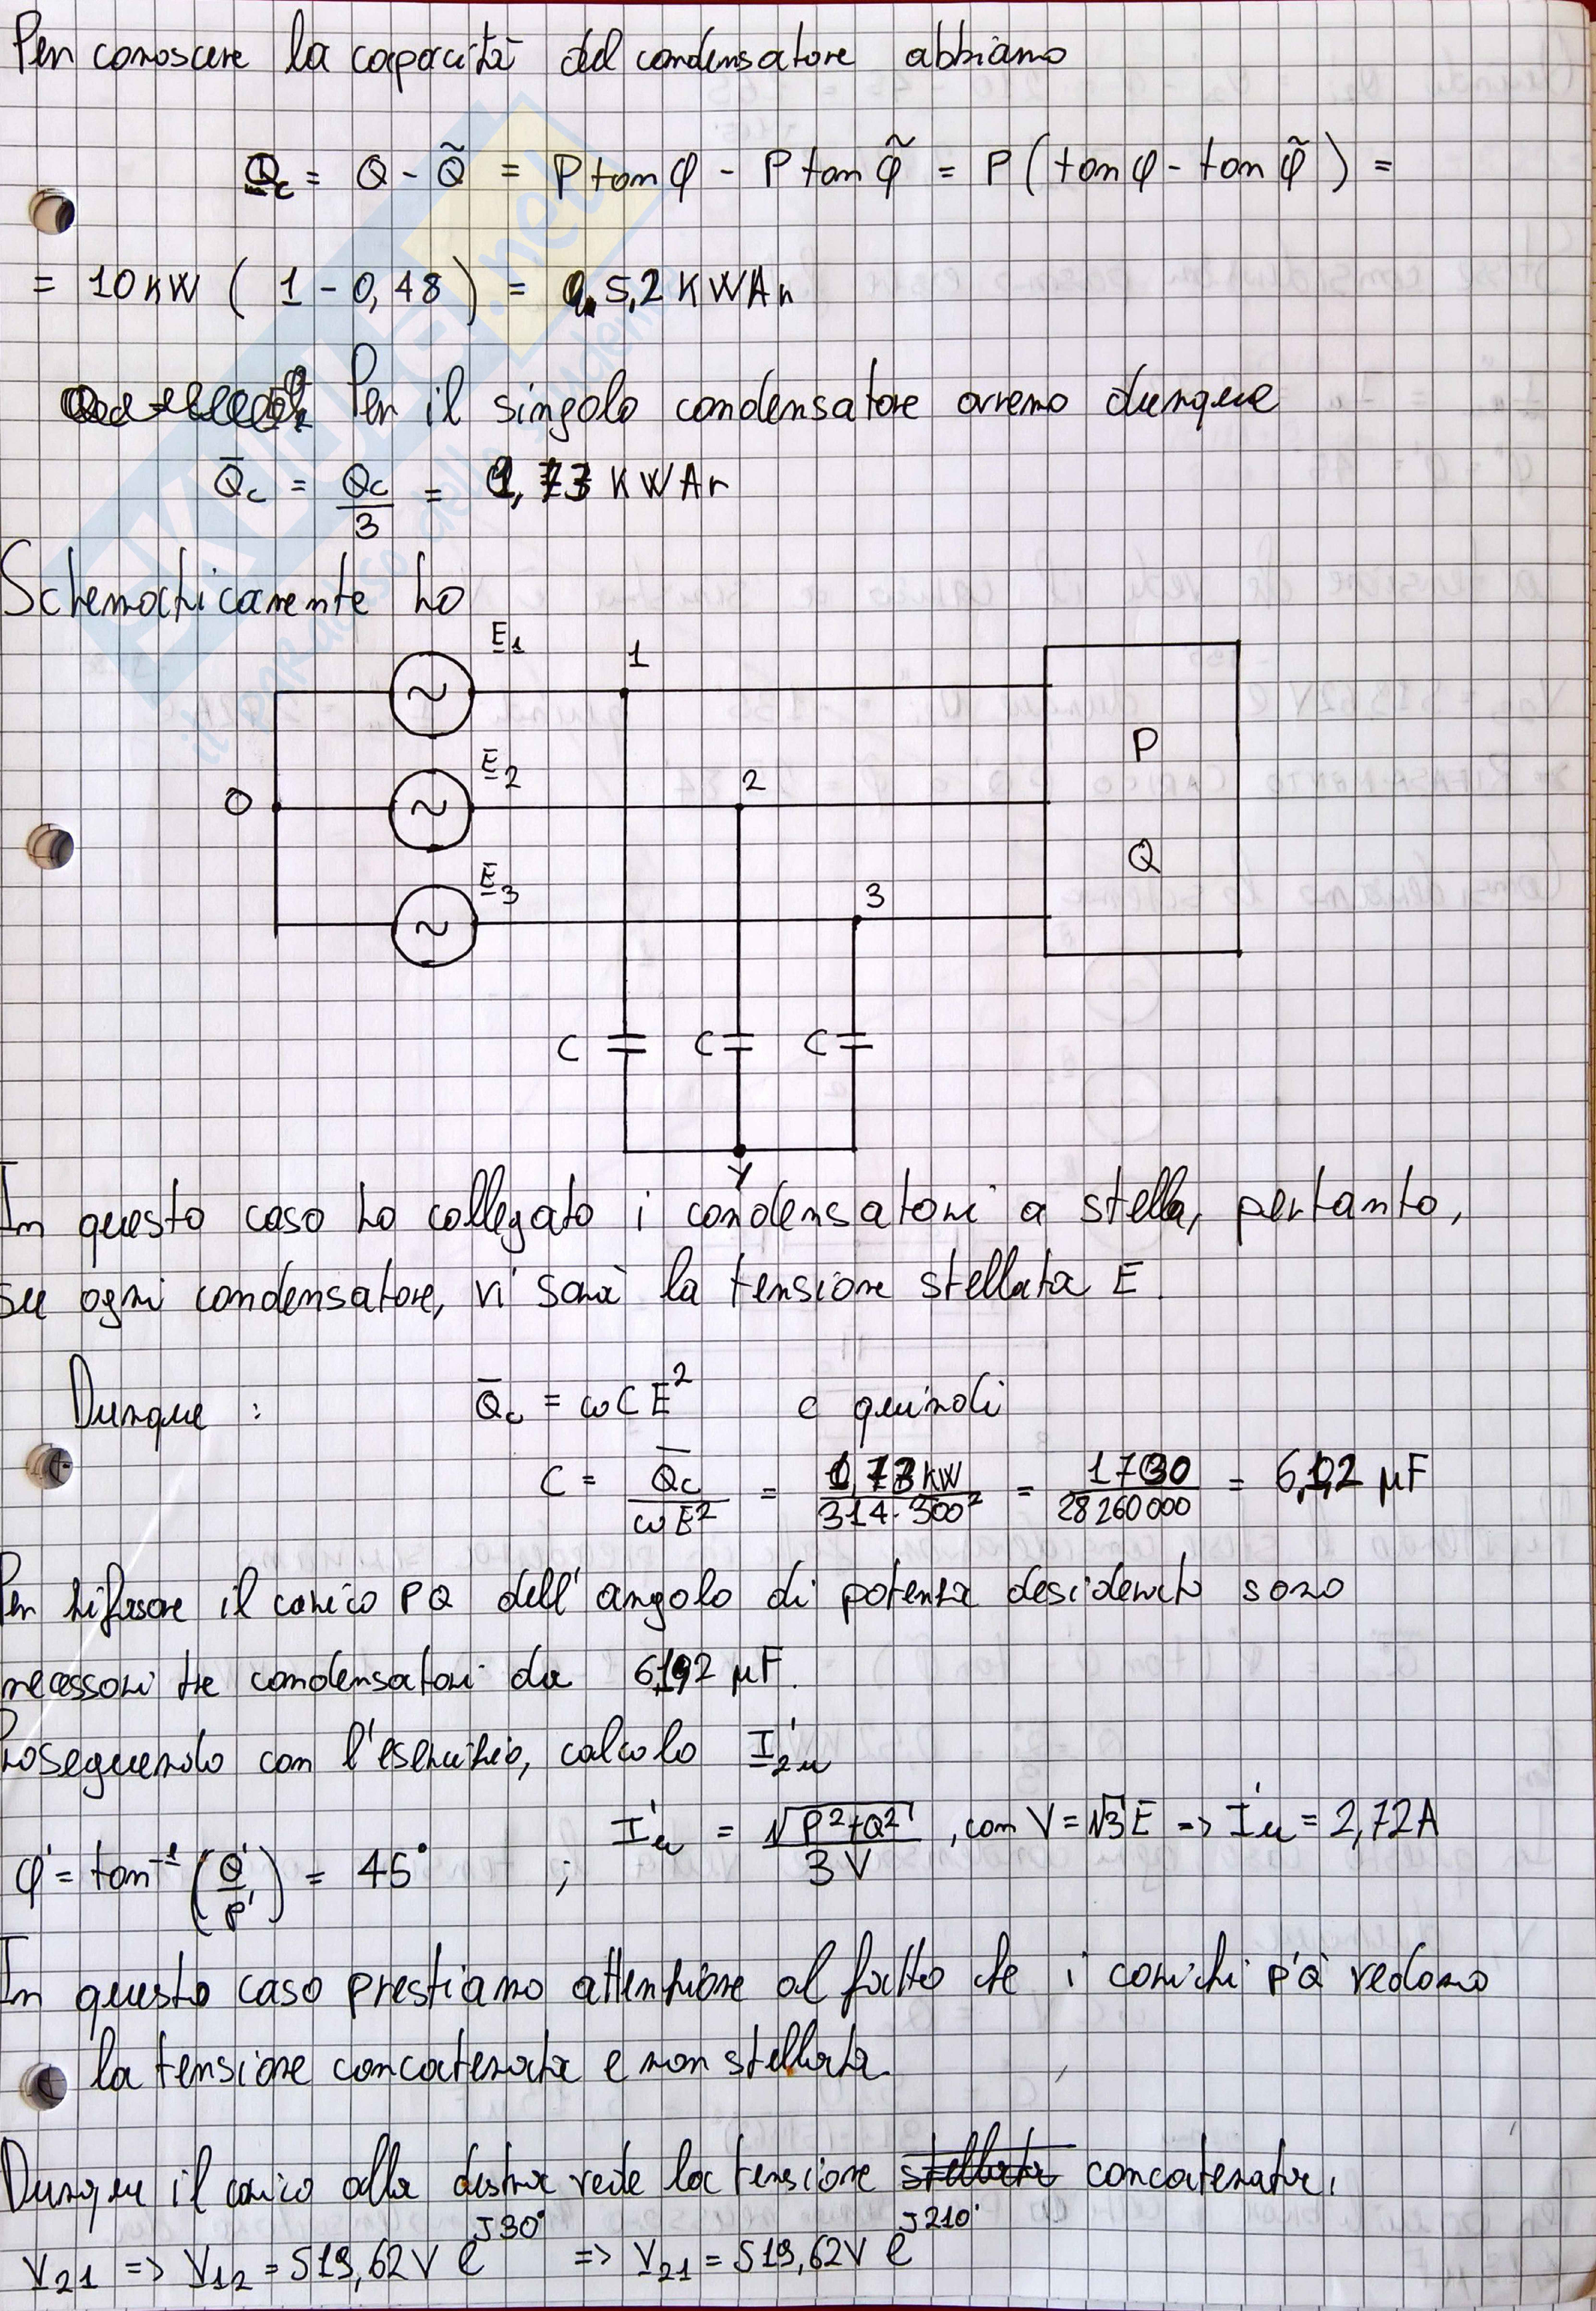 Per conoscere la capacità del condensatore abbiamo
Qc = Q - Q̃ = P tan φ - P tan φ̃ = P ( tan φ - tan φ̃ ) =
= 10 kW ( 1 - 0,48 ) = 5,2 KWAr
Per il singolo condensatore avremo dunque
Q̄c = Qc/3 = 1,73 KWAr
Schematicamente ho
E1
1
P
E2
2
O
Q
E3
3
C C C
Y
In questo caso ho collegato i condensatori a stella, pertanto,
su ogni condensatore, vi sarà la tensione stellata E.
Dunque : Q̄c = ωCE² e quindi
C = Q̄c/ωE² = 1,73 kW/314·300² = 1730/28260000 = μF
Per rifasare il carico PQ dell'angolo di potenza desiderato sono
necessari tre condensatori da μF.
Proseguendo con l'esercizio, calcolo I'2u
φ' = tan⁻¹ (Q'/P') = 45° ; I'u = √P²+Q²/3V , con V = √3 E => I'u = 2,72A
In questo caso prestiamo attenzione al fatto che i carichi P'Q' vedono
la tensione concatenata e non stellata.
Dunque il carico alla destra vede la tensione stellata concatenata,
V21 => V12 = 519,62V e^J30° => V21 = 519,62V e^J210°
SKUOLA.net
il paradiso dello studente